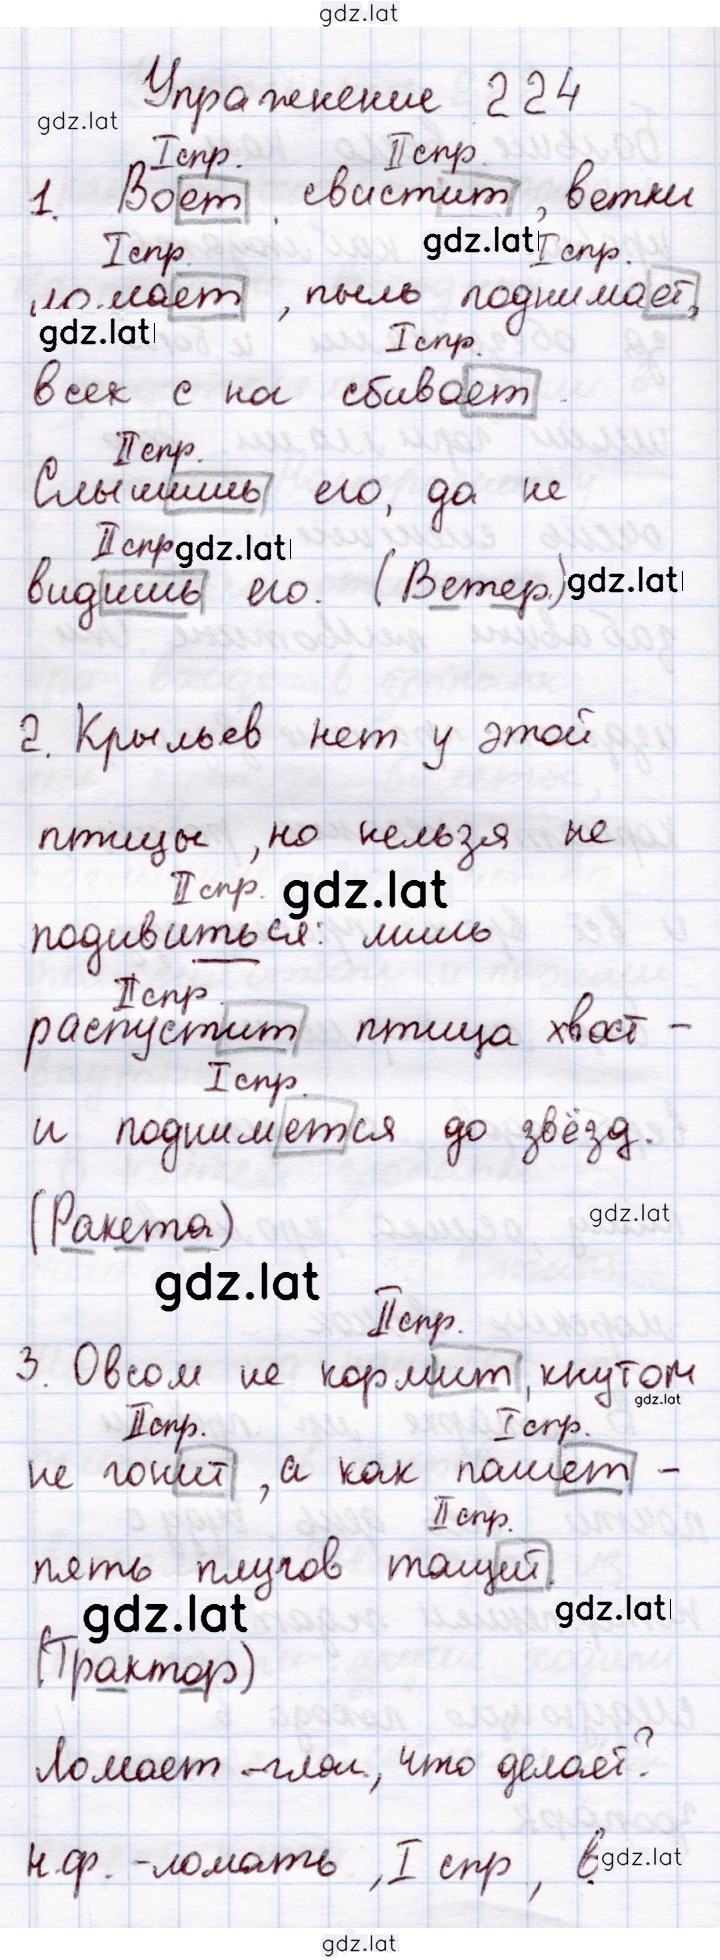 gdz.lat
Упражнение 224
gdz.lat
I спр. II спр.
1. Воет, свистит, ветки
gdz.lat
I спр. I спр.
ломает, пыль поднимает,
gdz.lat
I спр.
всех с ног сбивает.
II спр.
Слышишь его, да не
II спр. gdz.lat
видишь его. (Ветер.) gdz.lat
2. Крыльев нет у этой
птицы, но нельзя не
II спр. gdz.lat
подивиться: лишь
II спр.
распустит птица хвост -
I спр.
и поднимется до звёзд.
(Ракета) gdz.lat
gdz.lat
II спр.
3. Овсом не кормит, кнутом
gdz.lat
II спр. I спр.
не гонит, а как пашет -
II спр.
пять плугов тащит.
gdz.lat gdz.lat
(Трактор)
Ломает - глаг., что делает?
н.ф. - ломать, I спр, в
gdz.lat
gdz.lat